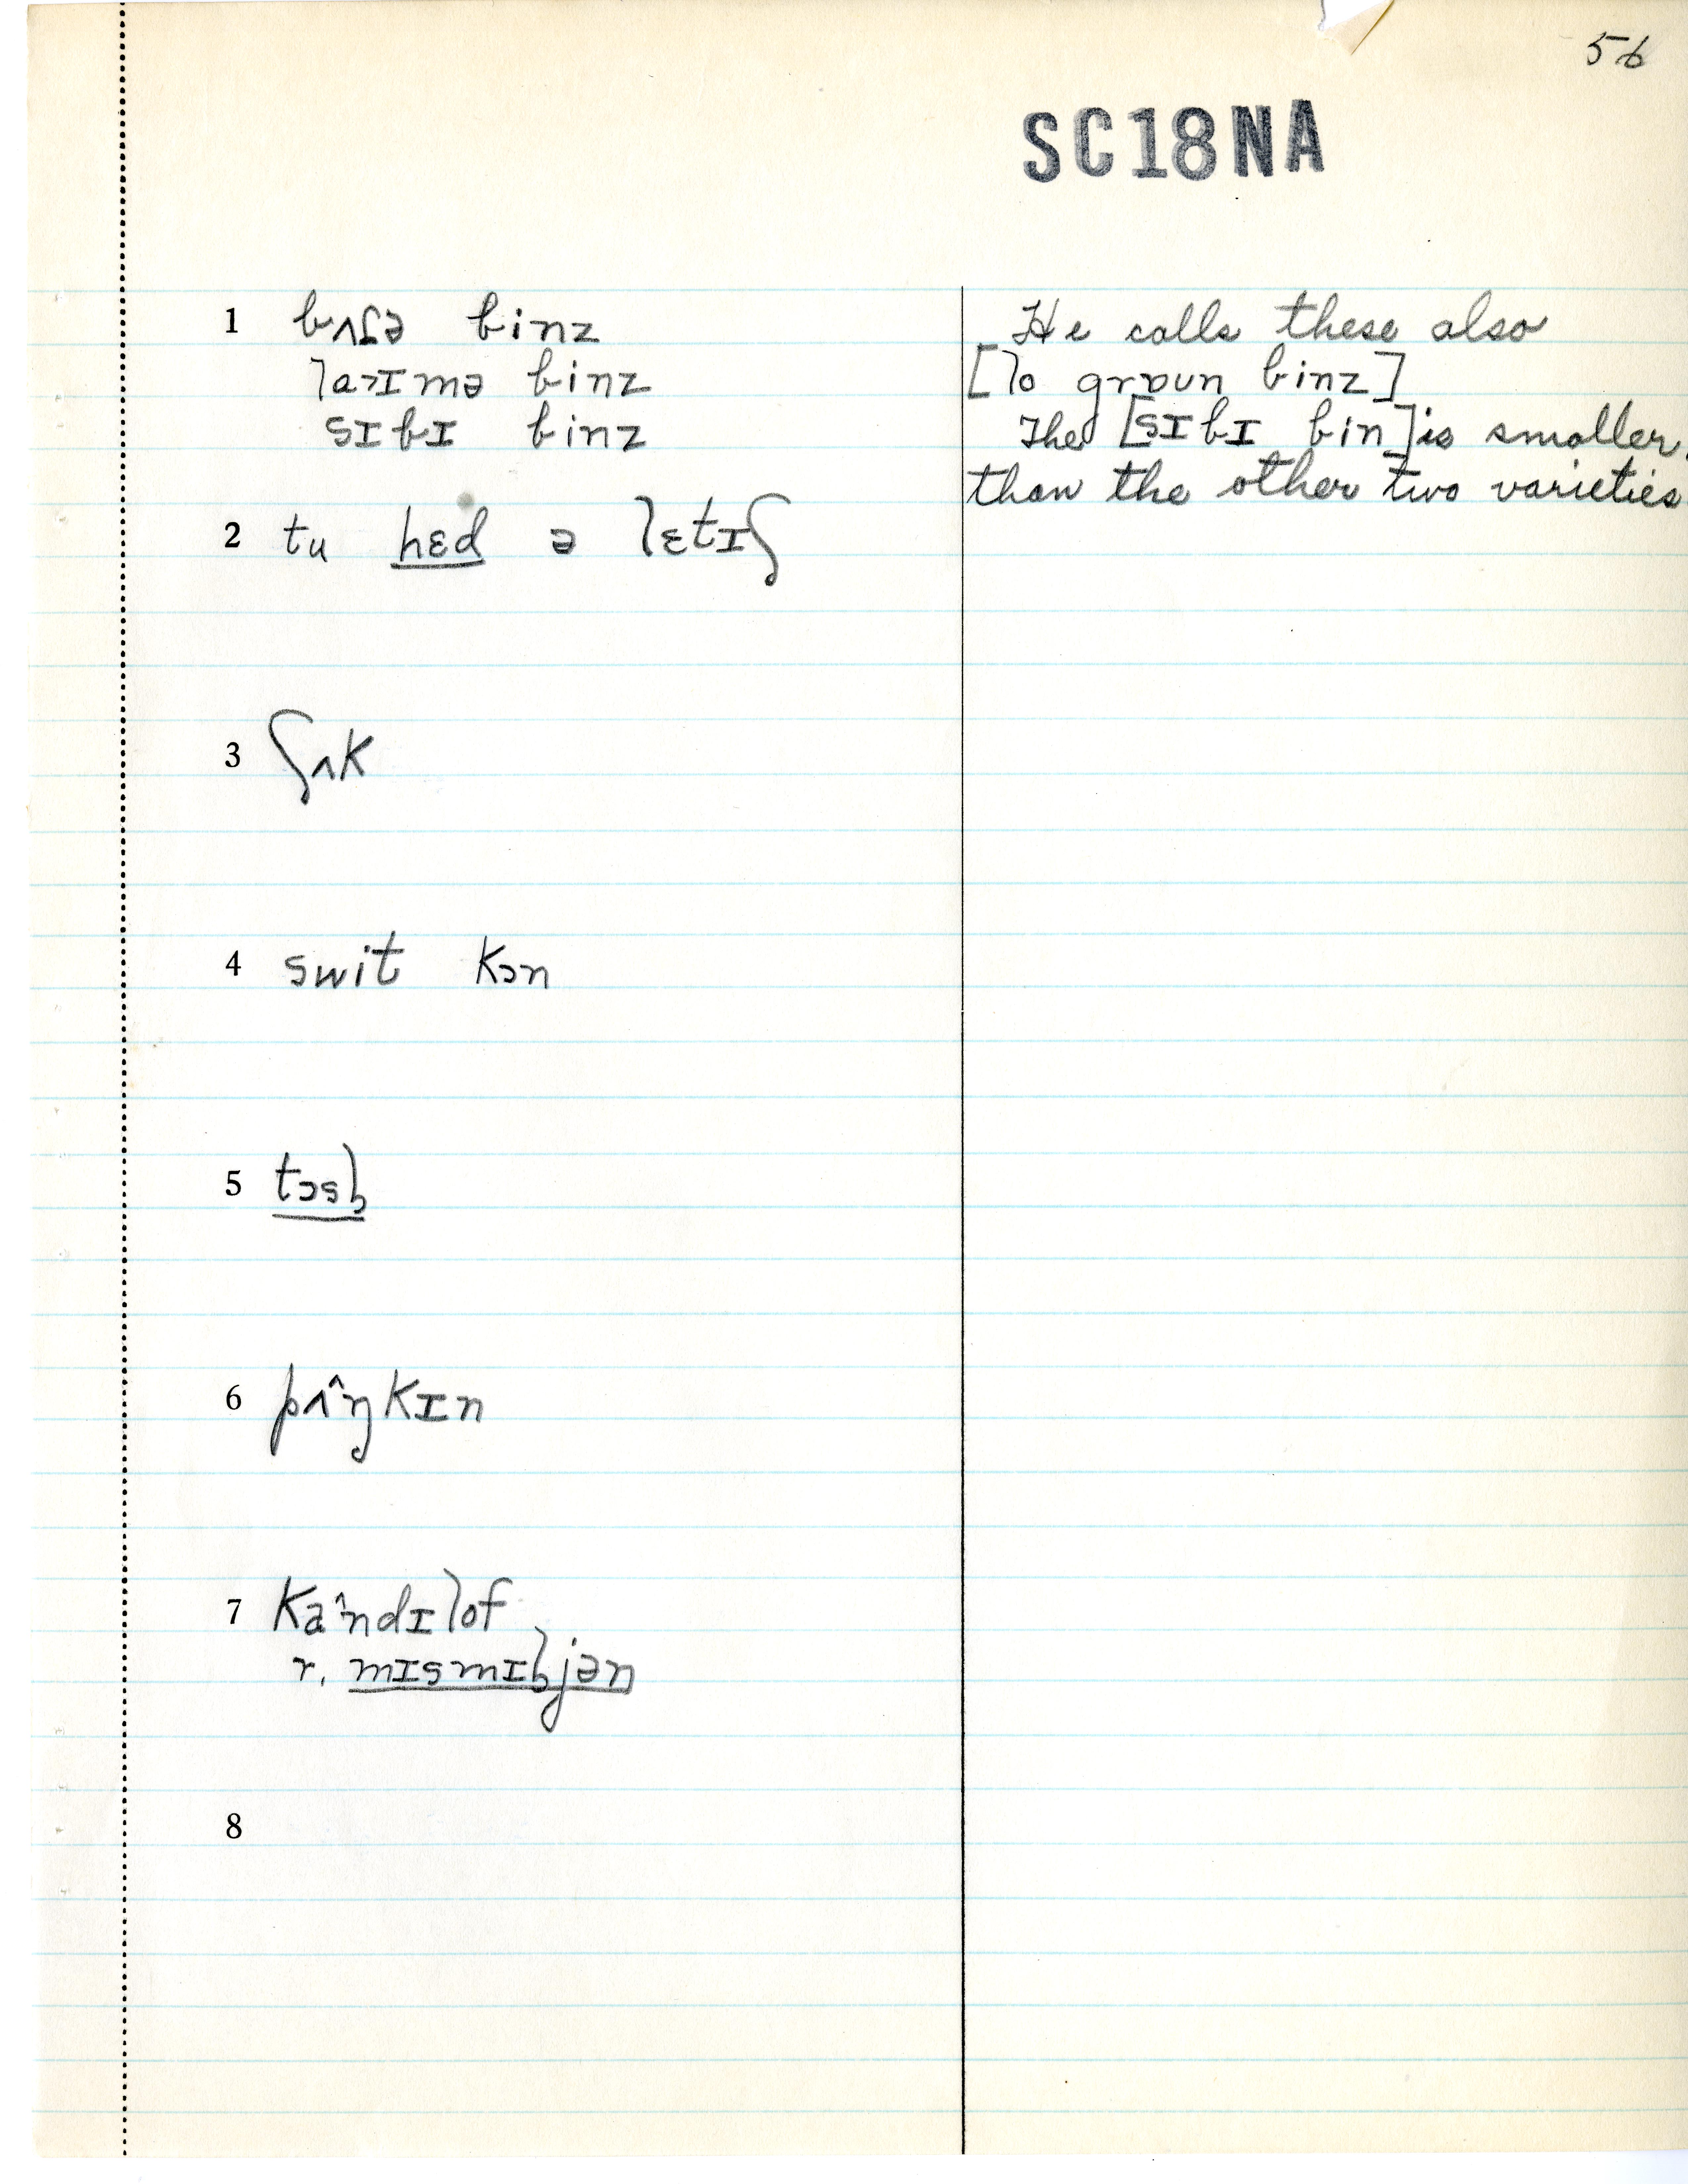 56
SC18NA
1 bʌɾə binz
laɪmə binz
sɪbɪ binz
He calls these also
[lo grɒun binz]
The [sɪbɪ bin] is smaller
than the other two varieties
2 tu hɛd ə lɛtɪʃ
3 ʃʌk
4 swit kɔn
5 tɔsl
6 pʌ̂ŋkɪn
7 kaˆndɪlof
r. mɪsmɪljən
8